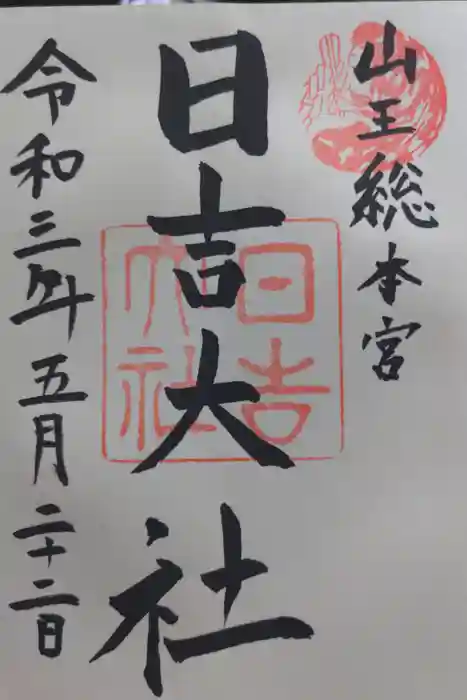 山王総本宮
日吉大社
日吉大社
令和三年五月二十二日